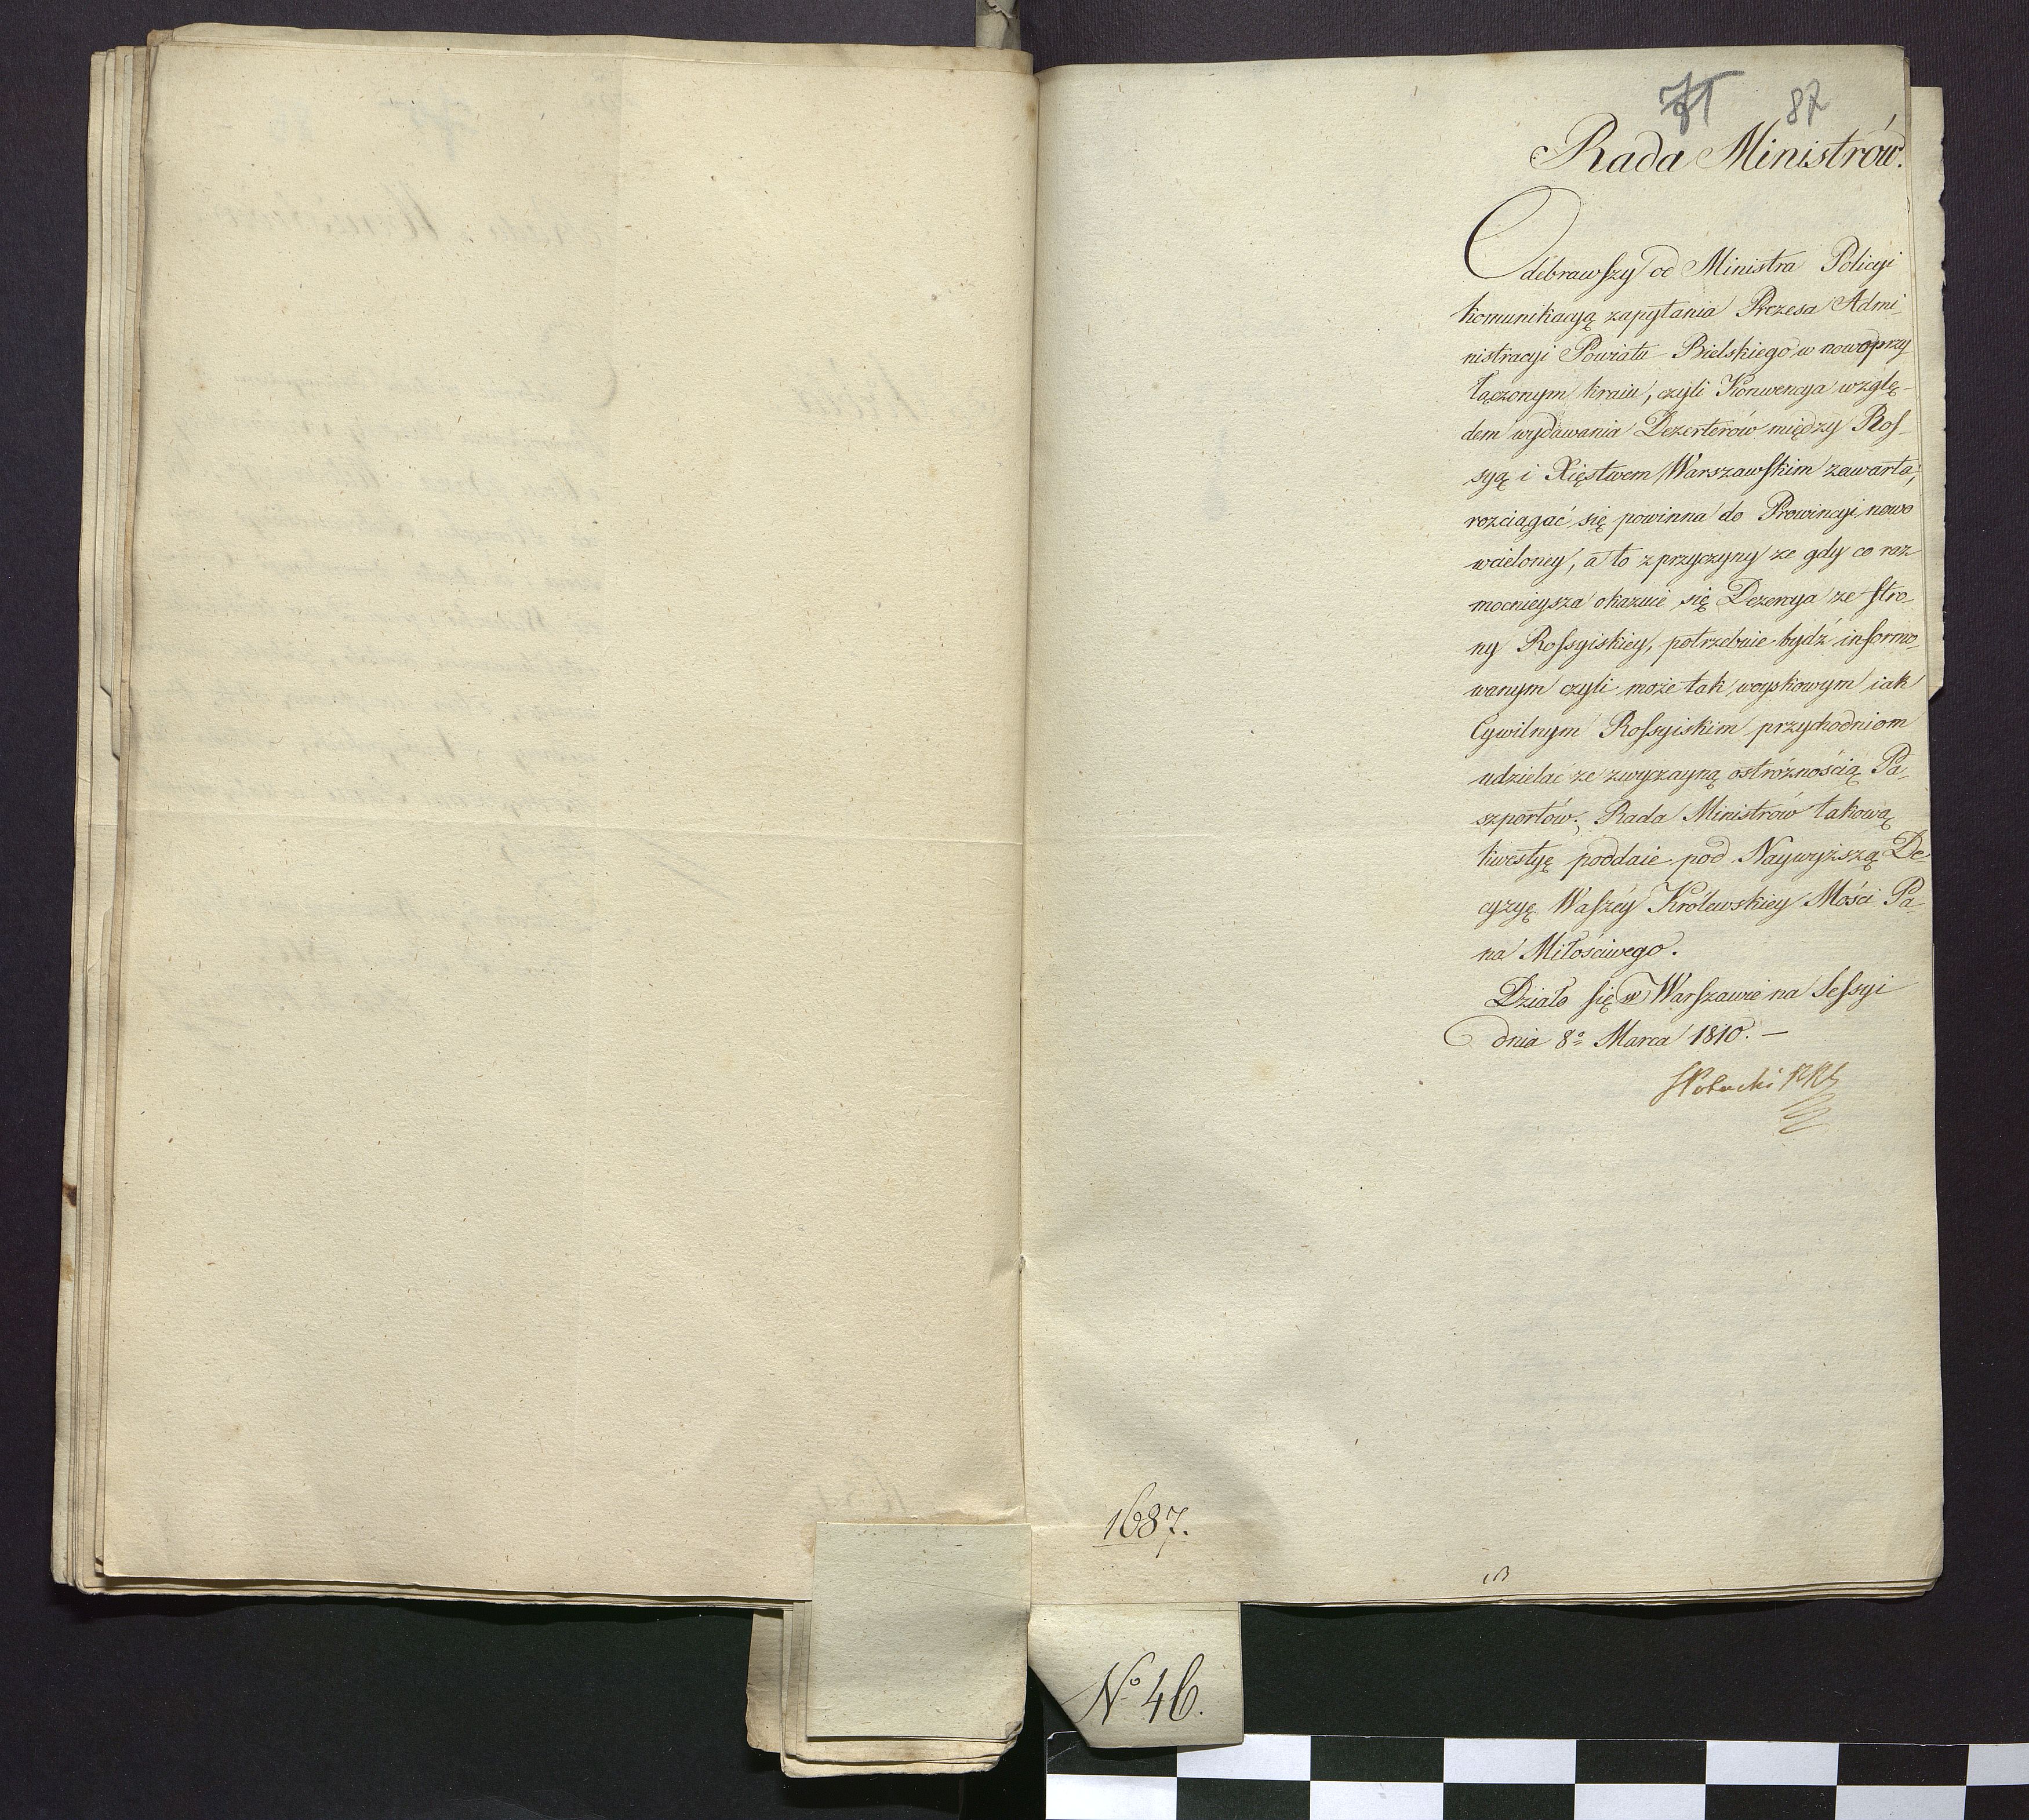 87
Rada Ministrów.
Odebrawszy od Ministra Policyi
komunikacyą zapytania Prezesa Admi-
nistracyi Powiatu Bielskiego w nowoprzy
łączonym kraiu, czyli Konwencya wzglę-
dem wydawania Dezerterów między Ros-
syą i Xięstwem Warszawskim zawarta,
rozciągać się powinna do Prowincyi nowo
wcieloney, a to z przyczyny ze gdy co raz
mocnieysza okazuie się Dezercya ze stro-
ny Rossyiskiey, potrzebuie bydź informo-
wanym czyli może tak woyskowym iak
Cywilnym Rossyiskim przychodniom
udzielać ze zwyczayną ostróżnością Pa-
szportów; Rada Ministrów takową
kwestyę poddaie pod Naywyższą De
cyzyę Waszéy Królewskiey Mości Pa-
na Miłościwego.
Działo się w Warszawie na Sessyi
dnia 8º Marca 1810. —
1687.
Nº 46.